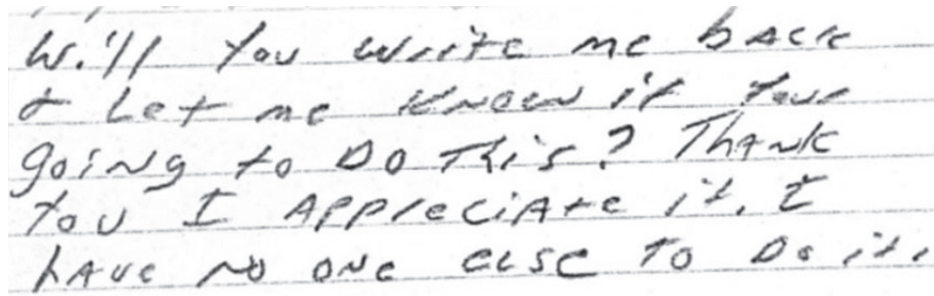 Will you write me back
& Let me know if your
going to Do This? Thank
you I Appreciate it. I
have no one else to Do it.